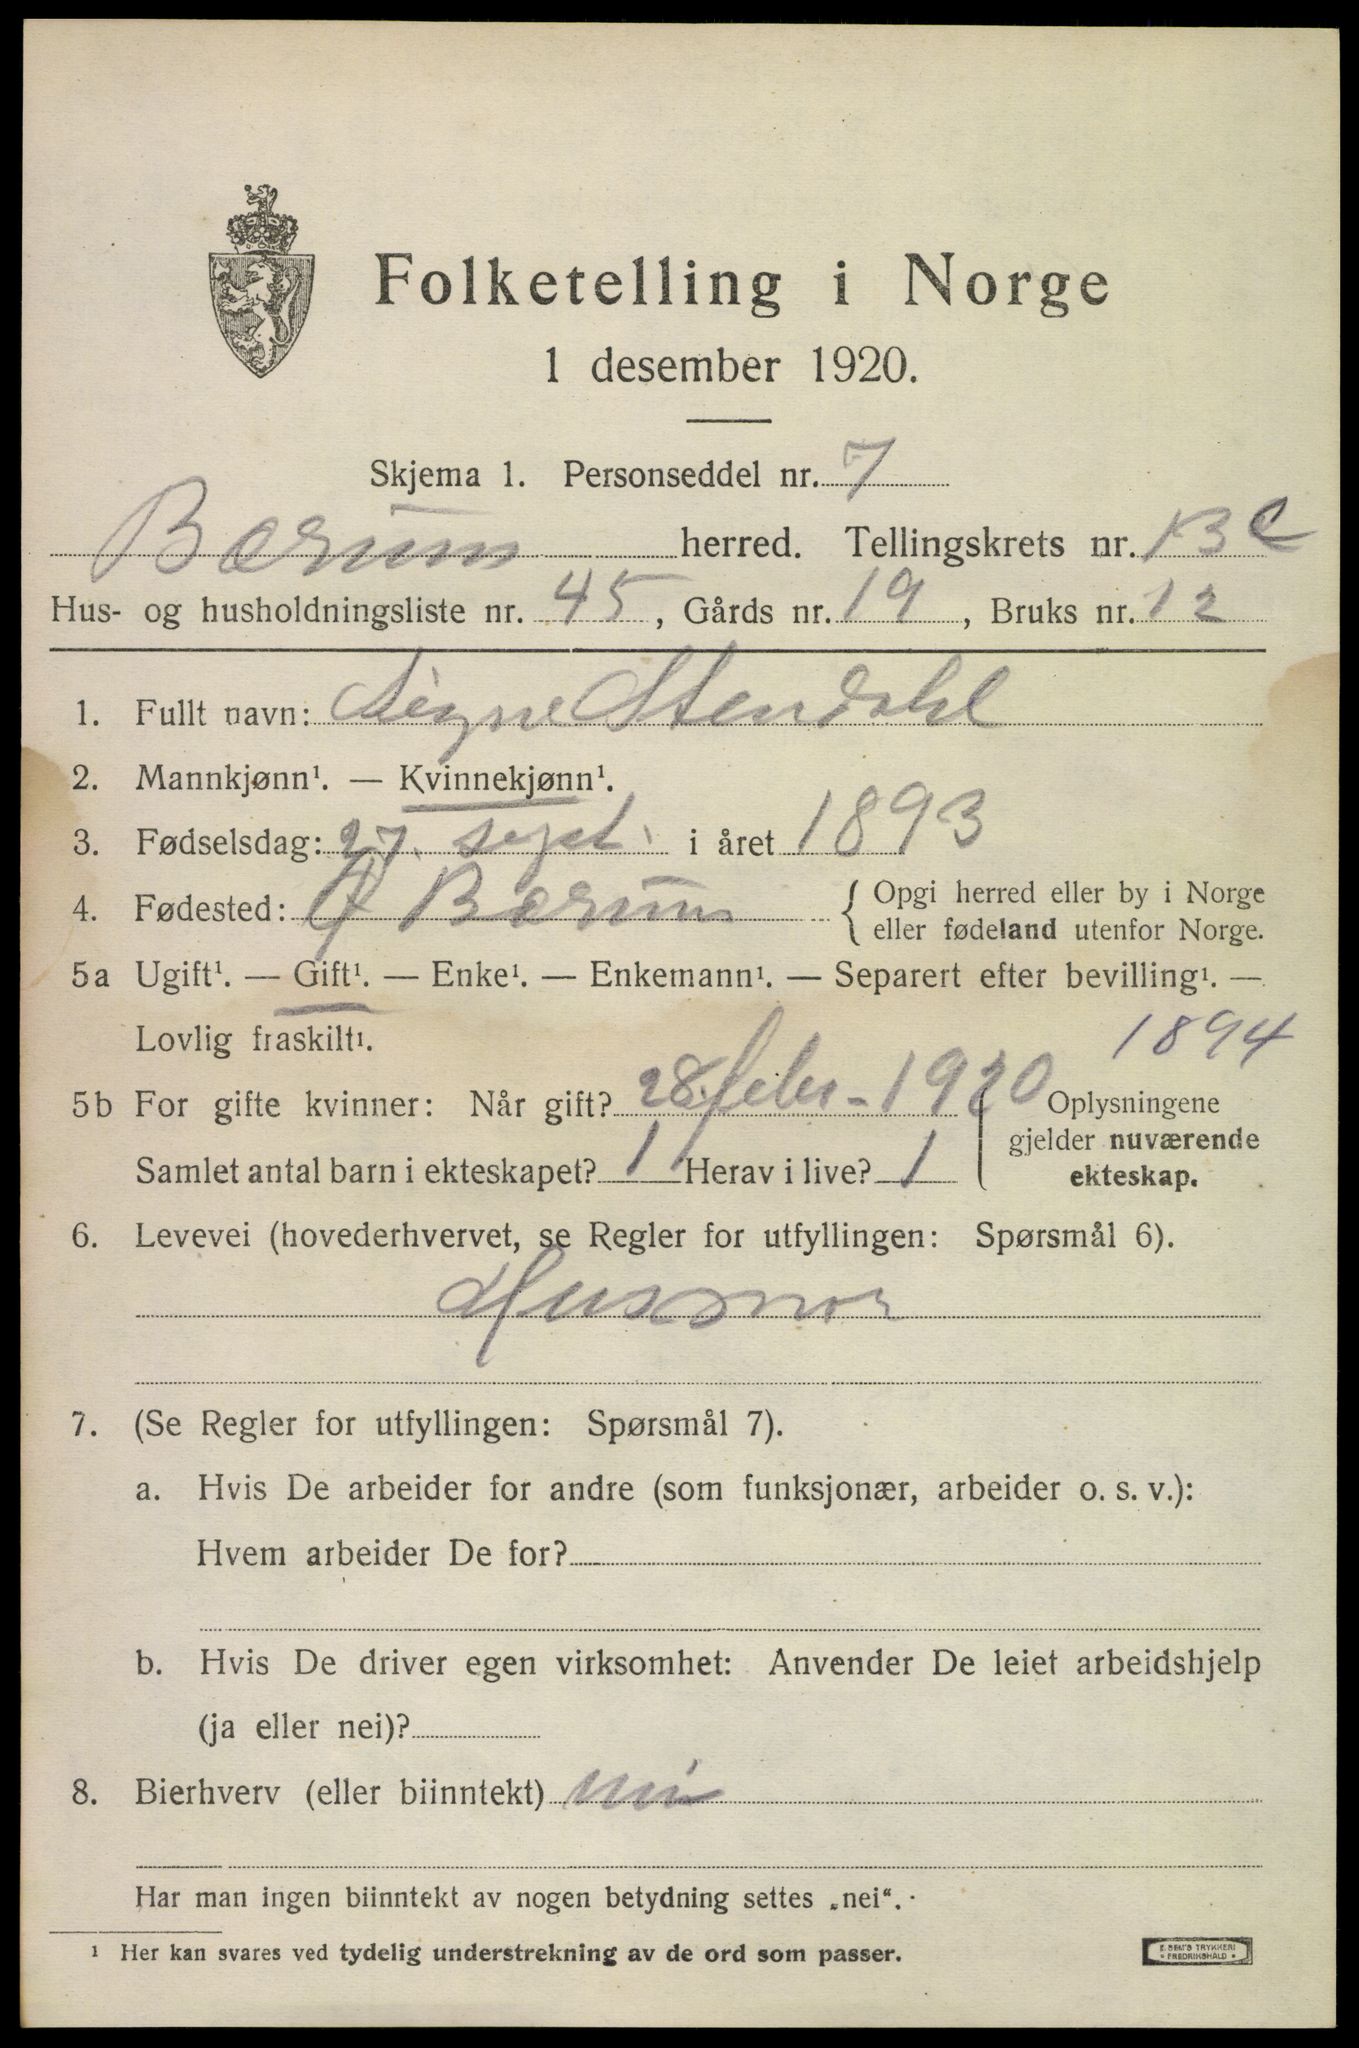 Folketelling i Norge
1 desember 1920.
Skjema 1. Personseddel nr. 7
Bærum herred. Tellingskrets nr. 13 C
Hus- og husholdningsliste nr. 45, Gårds nr. 19, Bruks nr. 12
1. Fullt navn: Signe Stendahl
2. Mannkjønn¹. — Kvinnekjønn¹.
3. Fødselsdag: 27. sept. i året 1893
4. Fødested: Bærum { Opgi herred eller by i Norge
eller fødeland utenfor Norge.
5a Ugift¹. — Gift¹. — Enke¹. — Enkemann¹. — Separert efter bevilling¹. —
Lovlig fraskilt¹.
1894
5b For gifte kvinner: Når gift? 28. febr - 1920
Samlet antal barn i ekteskapet? 1 Herav i live? 1
Oplysningene
gjelder nuværende
ekteskap.
6. Levevei (hovederhvervet, se Regler for utfyllingen: Spørsmål 6).
Husmor
7. (Se Regler for utfyllingen: Spørsmål 7).
a. Hvis De arbeider for andre (som funksjonær, arbeider o. s. v.):
Hvem arbeider De for?
b. Hvis De driver egen virksomhet: Anvender De leiet arbeidshjelp
(ja eller nei)?
8. Bierhverv (eller biinntekt) nei
Har man ingen biinntekt av nogen betydning settes „nei“.
¹ Her kan svares ved tydelig understrekning av de ord som passer.
E. SEM'S TRYKKERI
FREDRIKSHALD